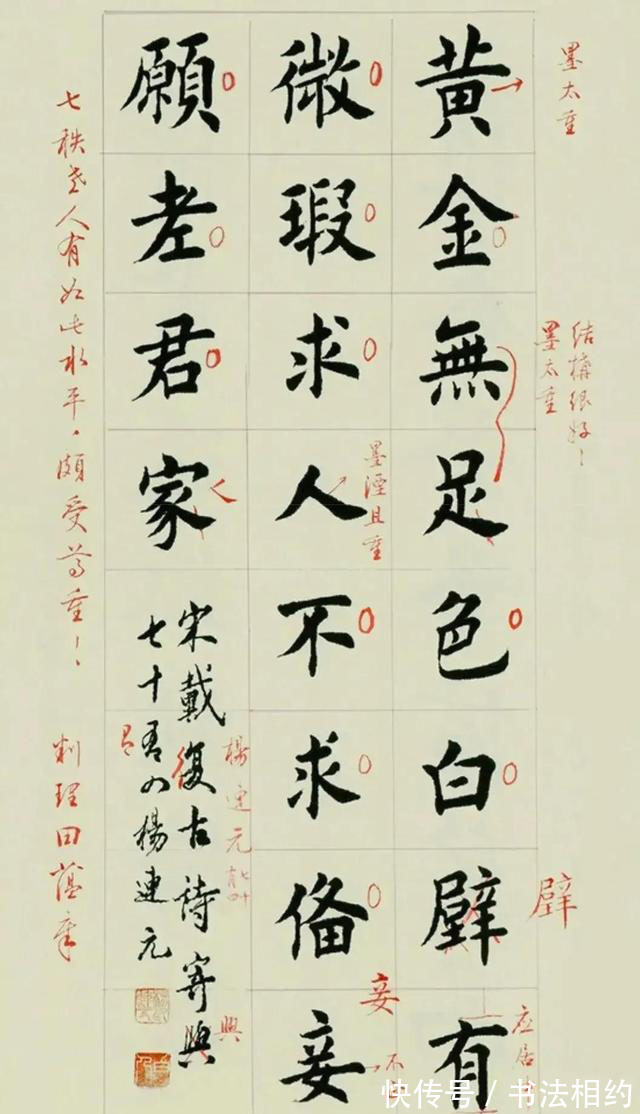 墨太重
結構很好！
墨太重
璧
应居
黄金無足色白璧有
微瑕求人不求俻妾
墨湮且重
妾
願老君家
宋戴復古詩寄興
七十四楊連元
楊連元
興
七秩老人有如此水平，頗受尊重！
田蕴章
快传号/书法相约